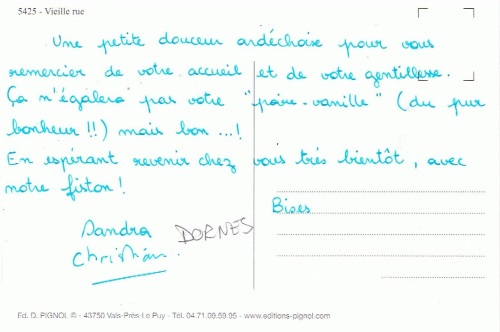 5425 - Vieille rue
Une petite douceur ardéchoise pour vous
remercier de votre accueil et de votre gentillesse.
Ça n'égalera pas votre "poire-vanille" (du pur
bonheur !!) mais bon ...!
En espérant revenir chez vous très bientôt, avec
notre fiston !
Bises
Sandra DORNES
Christian.
Ed. D. PIGNOL © - 43750 Vals-Près-Le Puy - Tél. 04.71.09.59.95 - www.editions-pignol.com